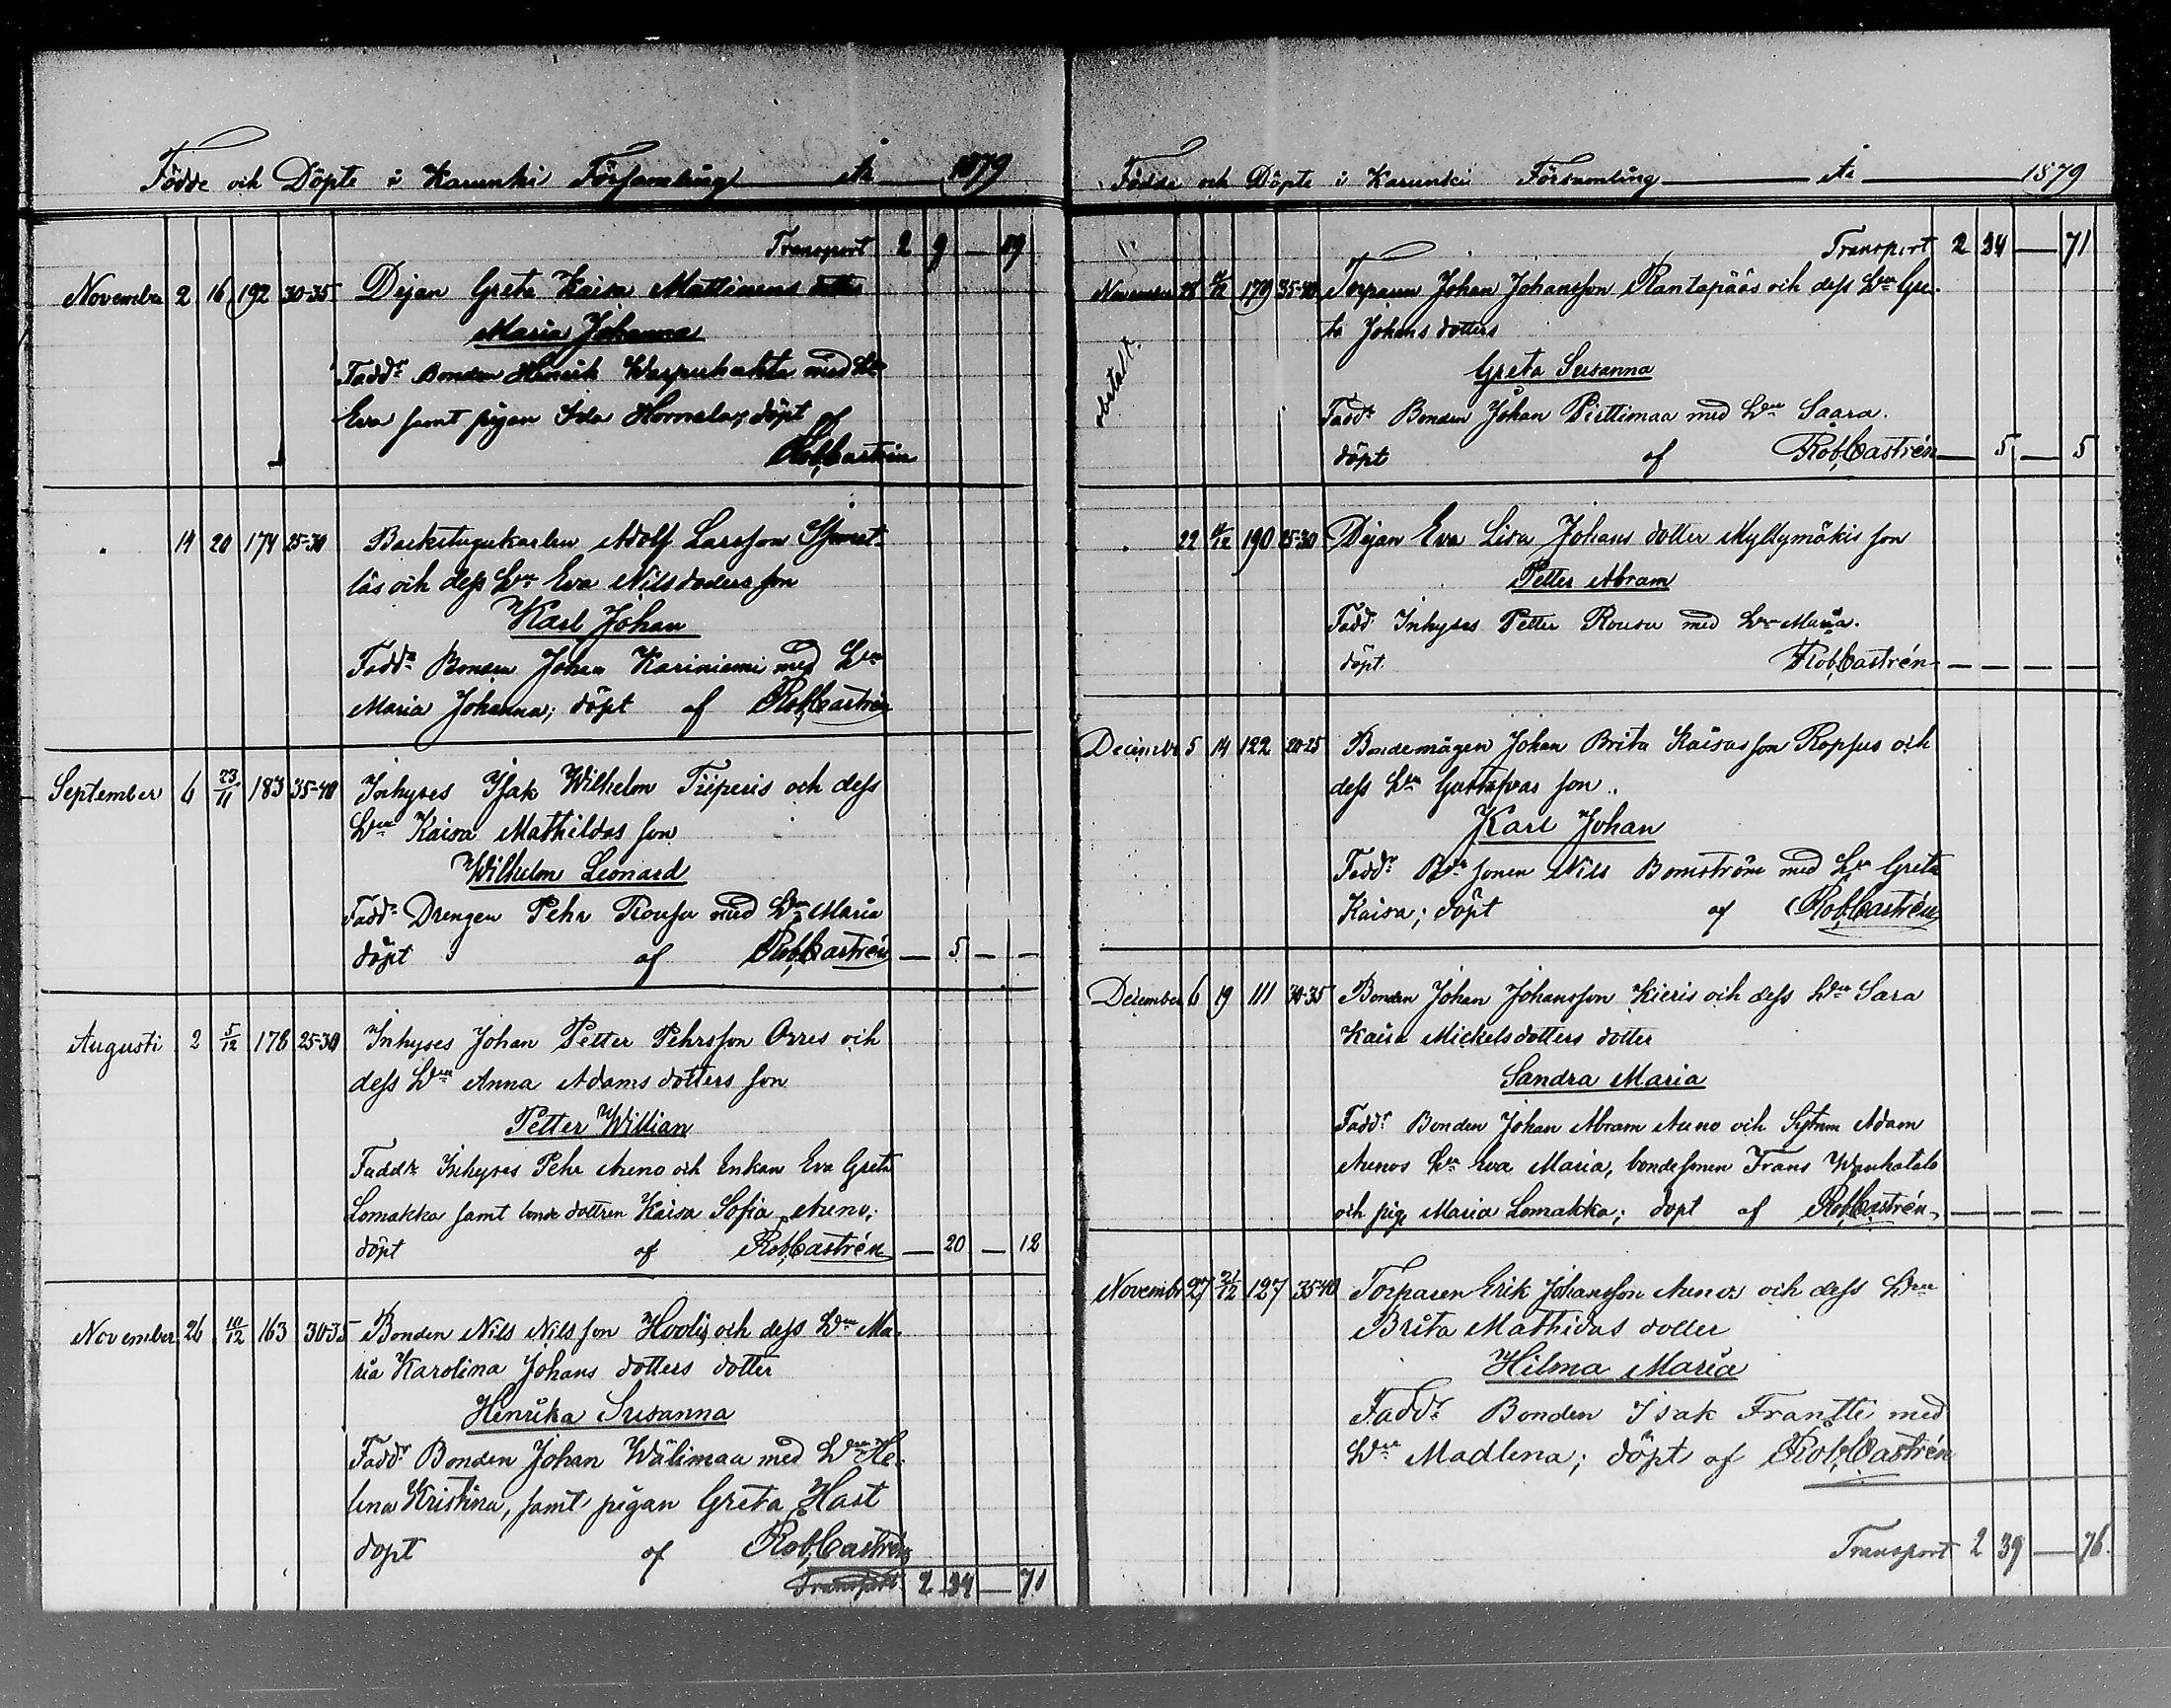 Födde och Döpte i Karunki Församling År 1879
Transport 2 9 — 59
November 2 16 192 30-35 Dejan Greta Kaisa Mattinens
Maria Johanna
Fadd. Bonden Henrik med Hu
Eva samt pigan Ida döpt af
Rob. Castrén
" 14 20 174 25-30 Backstugukarlen Adolf Larsson
läs och dess Hu Eva Nilsdoters son
Karl Johan
Fadd. Bonden Johan Kariniemi med Hu
Maria Johanna; döpt af Rob. Castrén
September 6 23/11 183 35-40 Inhyses Isak Wilhelm Tiiperis och dess
Hu Kaisa Mathildas son
Wilhelm Leonard
Fadd. Drengen Pehr Rousu med Hu Maria
döpt af Rob. Castrén — 5 — —
Augusti 2 5/12 178 25-30 Inhyses Johan Petter Pehrsson Orres och
dess Hu Anna Adams dotters son
Petter Willian
Faddr Inhyses Pehr Auno och Enkan Eva Greta
Lomakka samt bonde dottren Kaisa Sofia Auno;
döpt af Rob. Castrén — 20 — 12
November 26 10/12 163 30-35 Bonden Nils Nilsson Hoolis och dess Hu Ma-
ria Karolina Johans dotters dotter
Henrika Susanna
Fadd. Bonden Johan Wälimaa med Hu He-
lena Kristina, samt pigan Greta Hast
döpt af Rob. Castrén
Transport 2 34 — 71
Födde och Döpte i Karunki Församling År 1879
Transport 2 34 — 71
November 28 179 35-40 Torparen Johan Johansson Rantapääs och dess Hu Gre-
ta Johans dotters
Greta Susanna
Fadd. Bonden Johan Piettimaa med Hu Saara.
döpt af Rob. Castrén — 5 — 5
" 22 190 25-30 Dejan Eva Lisa Johans dotter Myllymäkis son
Petter Abram
Fadd Inhyses Petter Rousu med Hu Maria.
döpt. Rob. Castrén — — — —
December 5 14 122 20-25 Bondemågen Johan Brita Kaisasson Ropsus och
dess Hu Gustavas son.
Karl Johan
Fadd. sonen Nils Bomström med Hu Greta
Kaisa; döpt af Rob. Castrén
December 6 19 111 30-35 Bonden Johan Johansson Kieris och dess Hu Sara
Kaisa Mickelsdotters dotter
Sandra Maria
Fadd. Bonden Johan Abram Auno och Adam
Aunos Hu Eva Maria, bondesonen Frans Wanhatalo
och pig. Maria Lomakka; döpt af Rob. Castrén — — — —
November 27 21/12 127 35-40 Torparen Erik Johansson Aunos och dess Hu
Brita Mathidas dotter
Hilma Maria
Fadd. Bonden Isak Frantti med
Hu Madlena; döpt af Rob. Castrén
Transport 2 39 — 76.